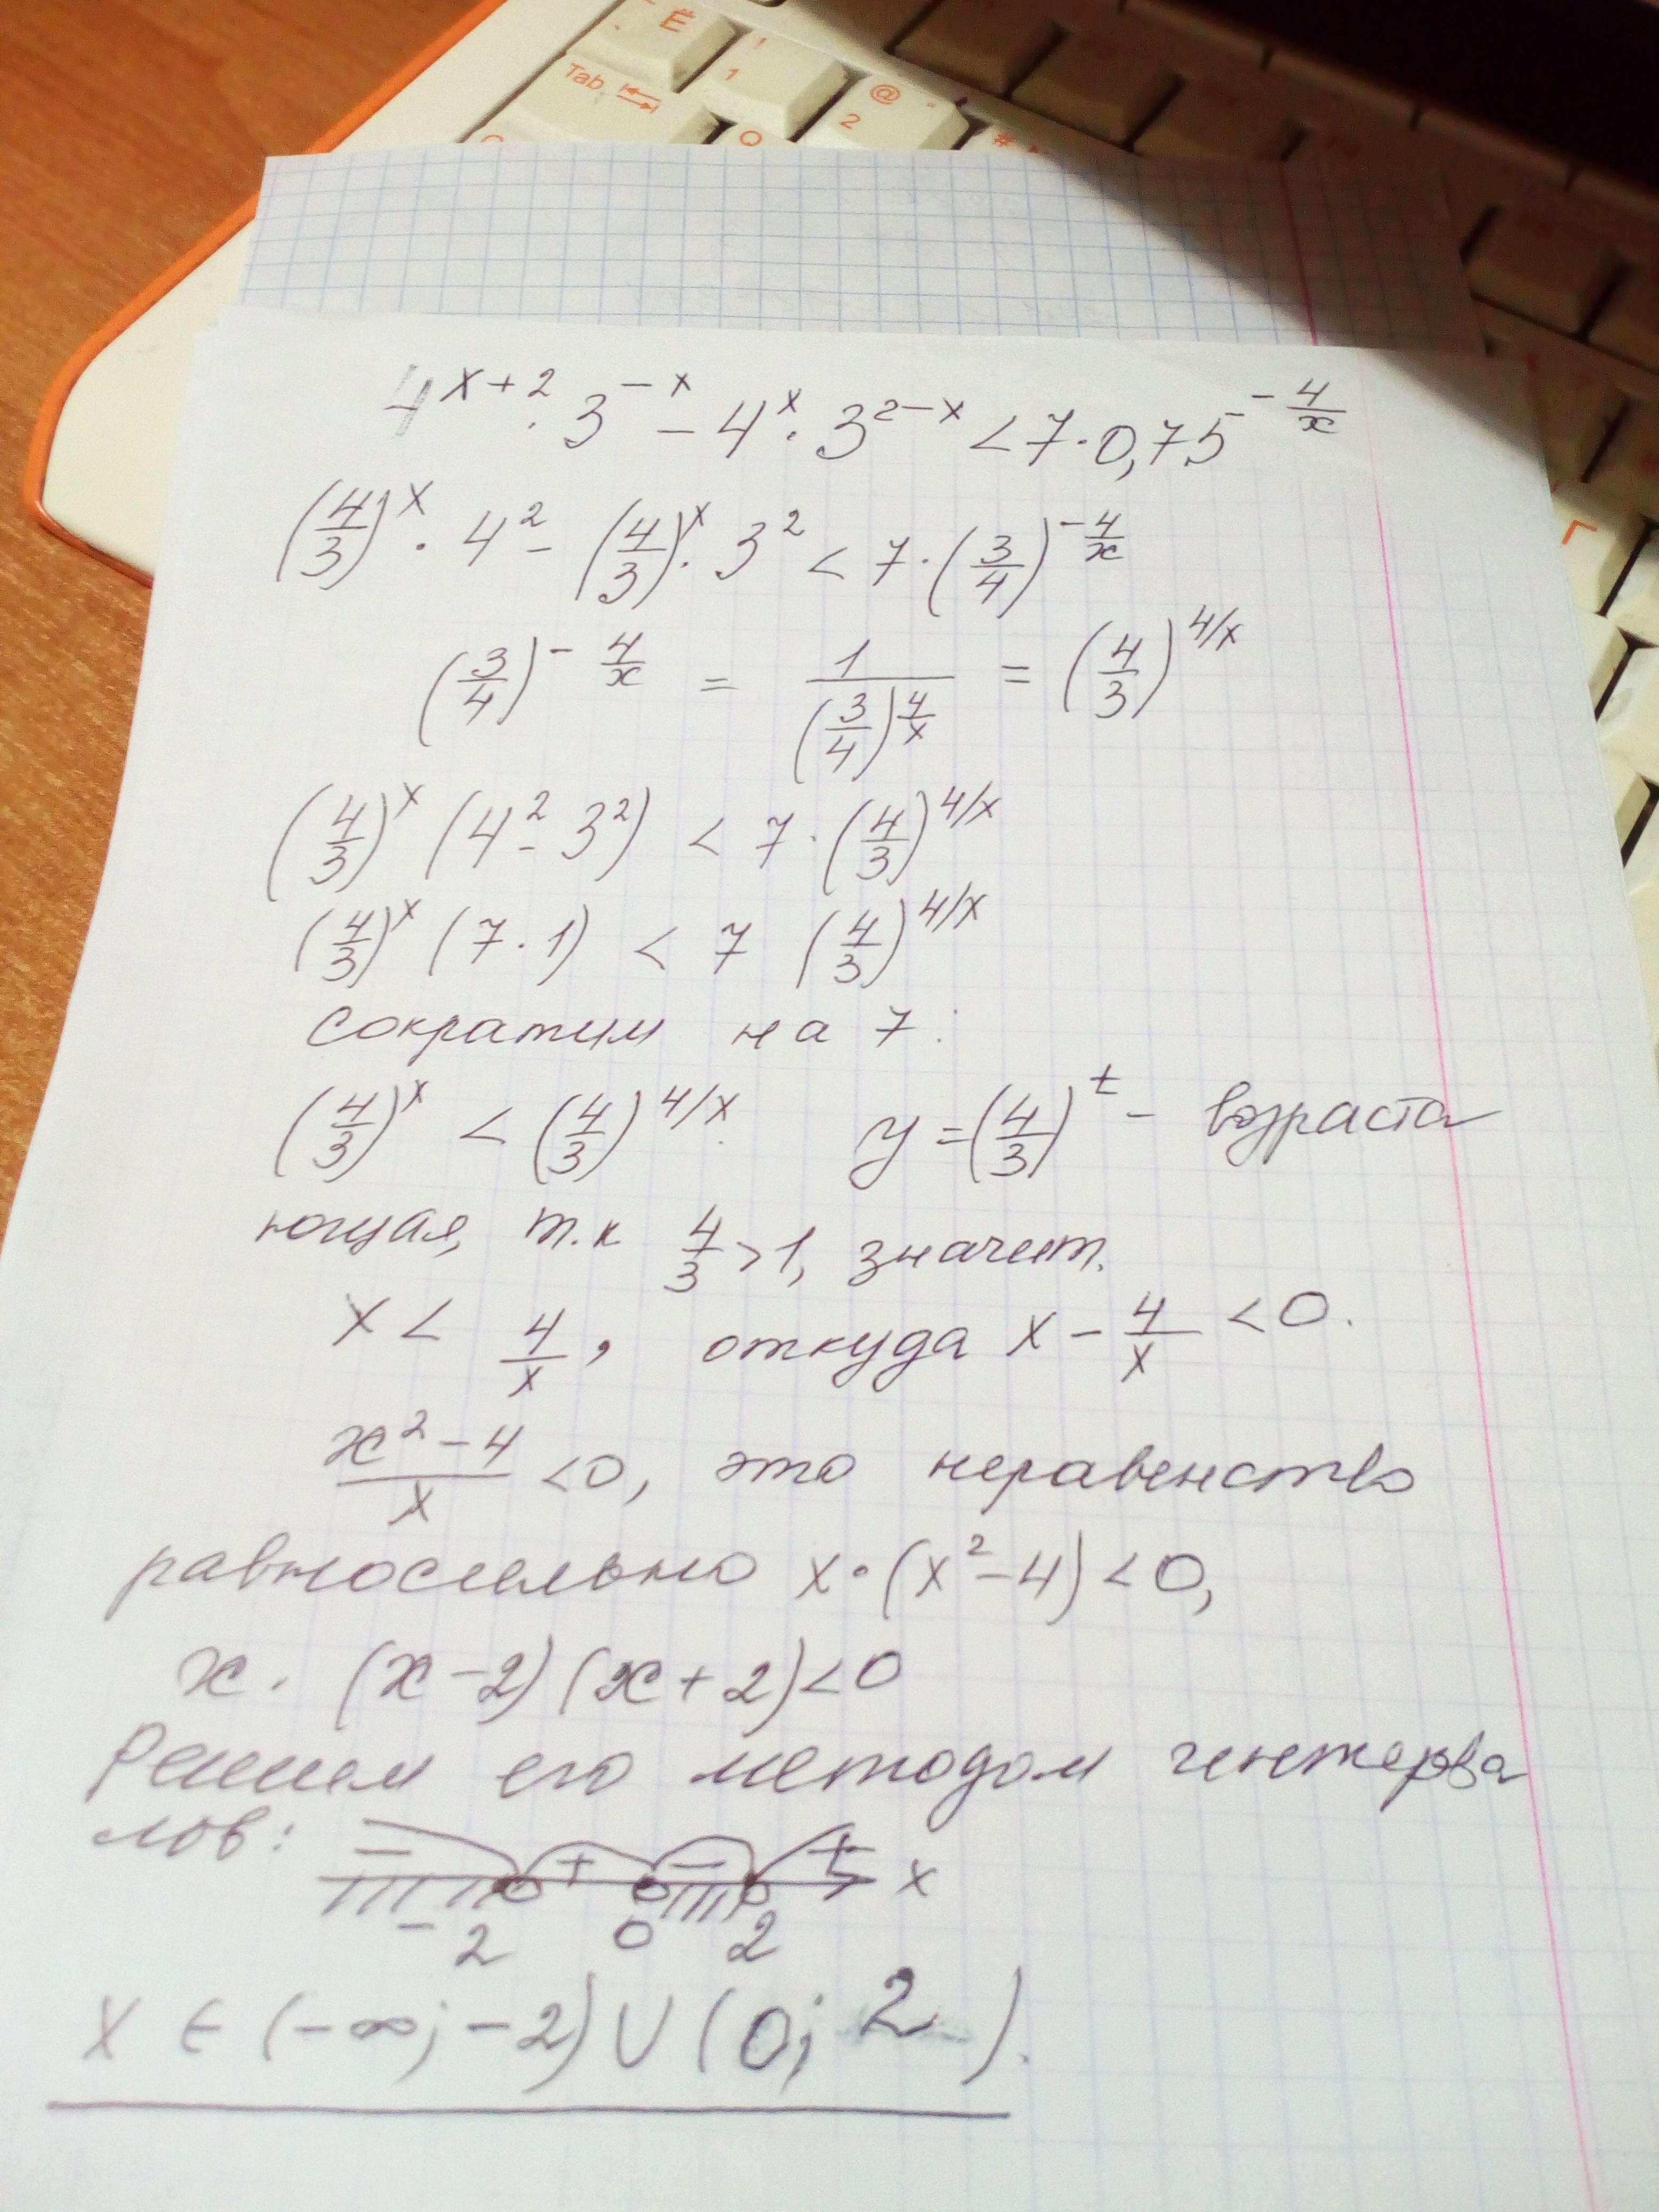 Ё
1
1
@
2
Tab
Q
#
Г
4^{x+2} · 3^{-x} - 4^x · 3^{2-x} < 7 · 0,75^{-\frac{4}{x}}
(\frac{4}{3})^x · 4^2 - (\frac{4}{3})^x · 3^2 < 7 · (\frac{3}{4})^{-\frac{4}{x}}
(\frac{3}{4})^{-\frac{4}{x}} = \frac{1}{(\frac{3}{4})^{\frac{4}{x}}} = (\frac{4}{3})^{4/x}
(\frac{4}{3})^x (4^2 - 3^2) < 7 · (\frac{4}{3})^{4/x}
(\frac{4}{3})^x (7 · 1) < 7 (\frac{4}{3})^{4/x}
Сократим на 7:
(\frac{4}{3})^x < (\frac{4}{3})^{4/x}. y = (\frac{4}{3})^t - возраста
ющая, т.к \frac{4}{3} > 1, значит.
x < \frac{4}{x}, откуда x - \frac{4}{x} < 0.
\frac{x^2 - 4}{x} < 0, это неравенство
равносильно x · (x^2 - 4) < 0,
x · (x - 2)(x + 2) < 0
Решим его методом интерва
лов:
- + - + x
-2 0 2
x ∈ (-∞; -2) ∪ (0; 2).